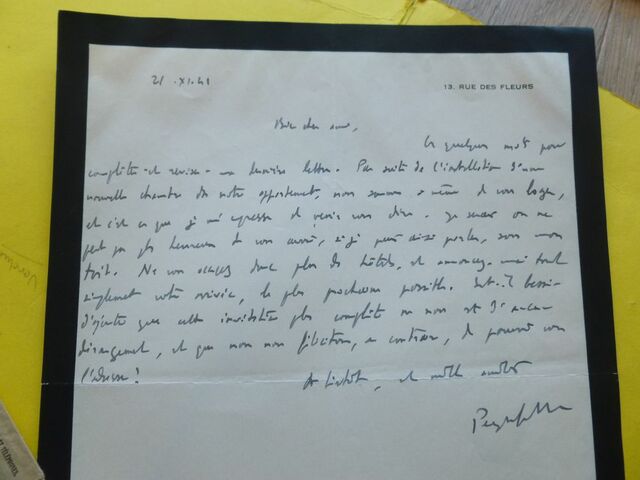 21 . XI. 41
13, RUE DES FLEURS
Bien cher ami,
Ces quelques mots pour
compléter et reviser ma dernière lettre. Par suite de l'installation d'une
nouvelle chambre dans notre appartement, nous sommes à même de vous loger,
et c'est ce que je m'empresse de venir vous dire. Je serai on ne
peut pas plus heureux de vous avoir, si je puis ainsi parler, sous mon
toit. Ne vous occupez donc plus des hôtels, et annoncez-moi tout
simplement votre arrivée, le plus prochaine possible. Est-il besoin
d'ajouter que cette invitation plus complète ne nous est d'aucun
dérangement, et que nous nous félicitons, au contraire, de pouvoir vous
l'adresser!
A bientôt, et mille amitiés